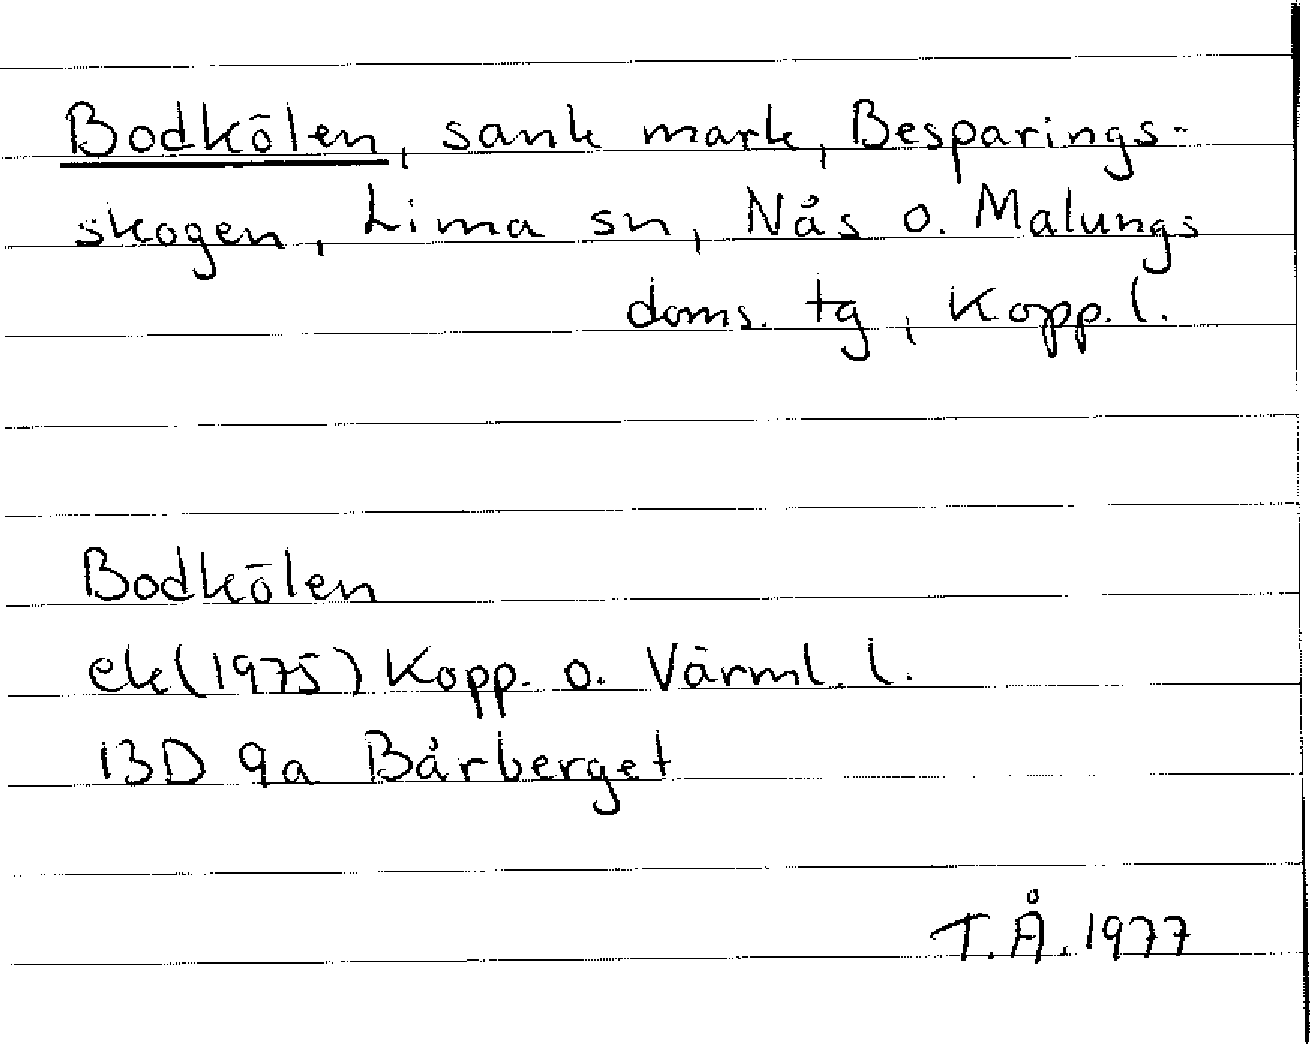 Bodkölen, sank mark, Besparings-
skogen, Lima sn, Nås o. Malungs
doms. tg, Kopp. l.
Bodkölen
ek (1975) Kopp. o. Värml. l.
13D 9a Bårberget
T.Å. 1977